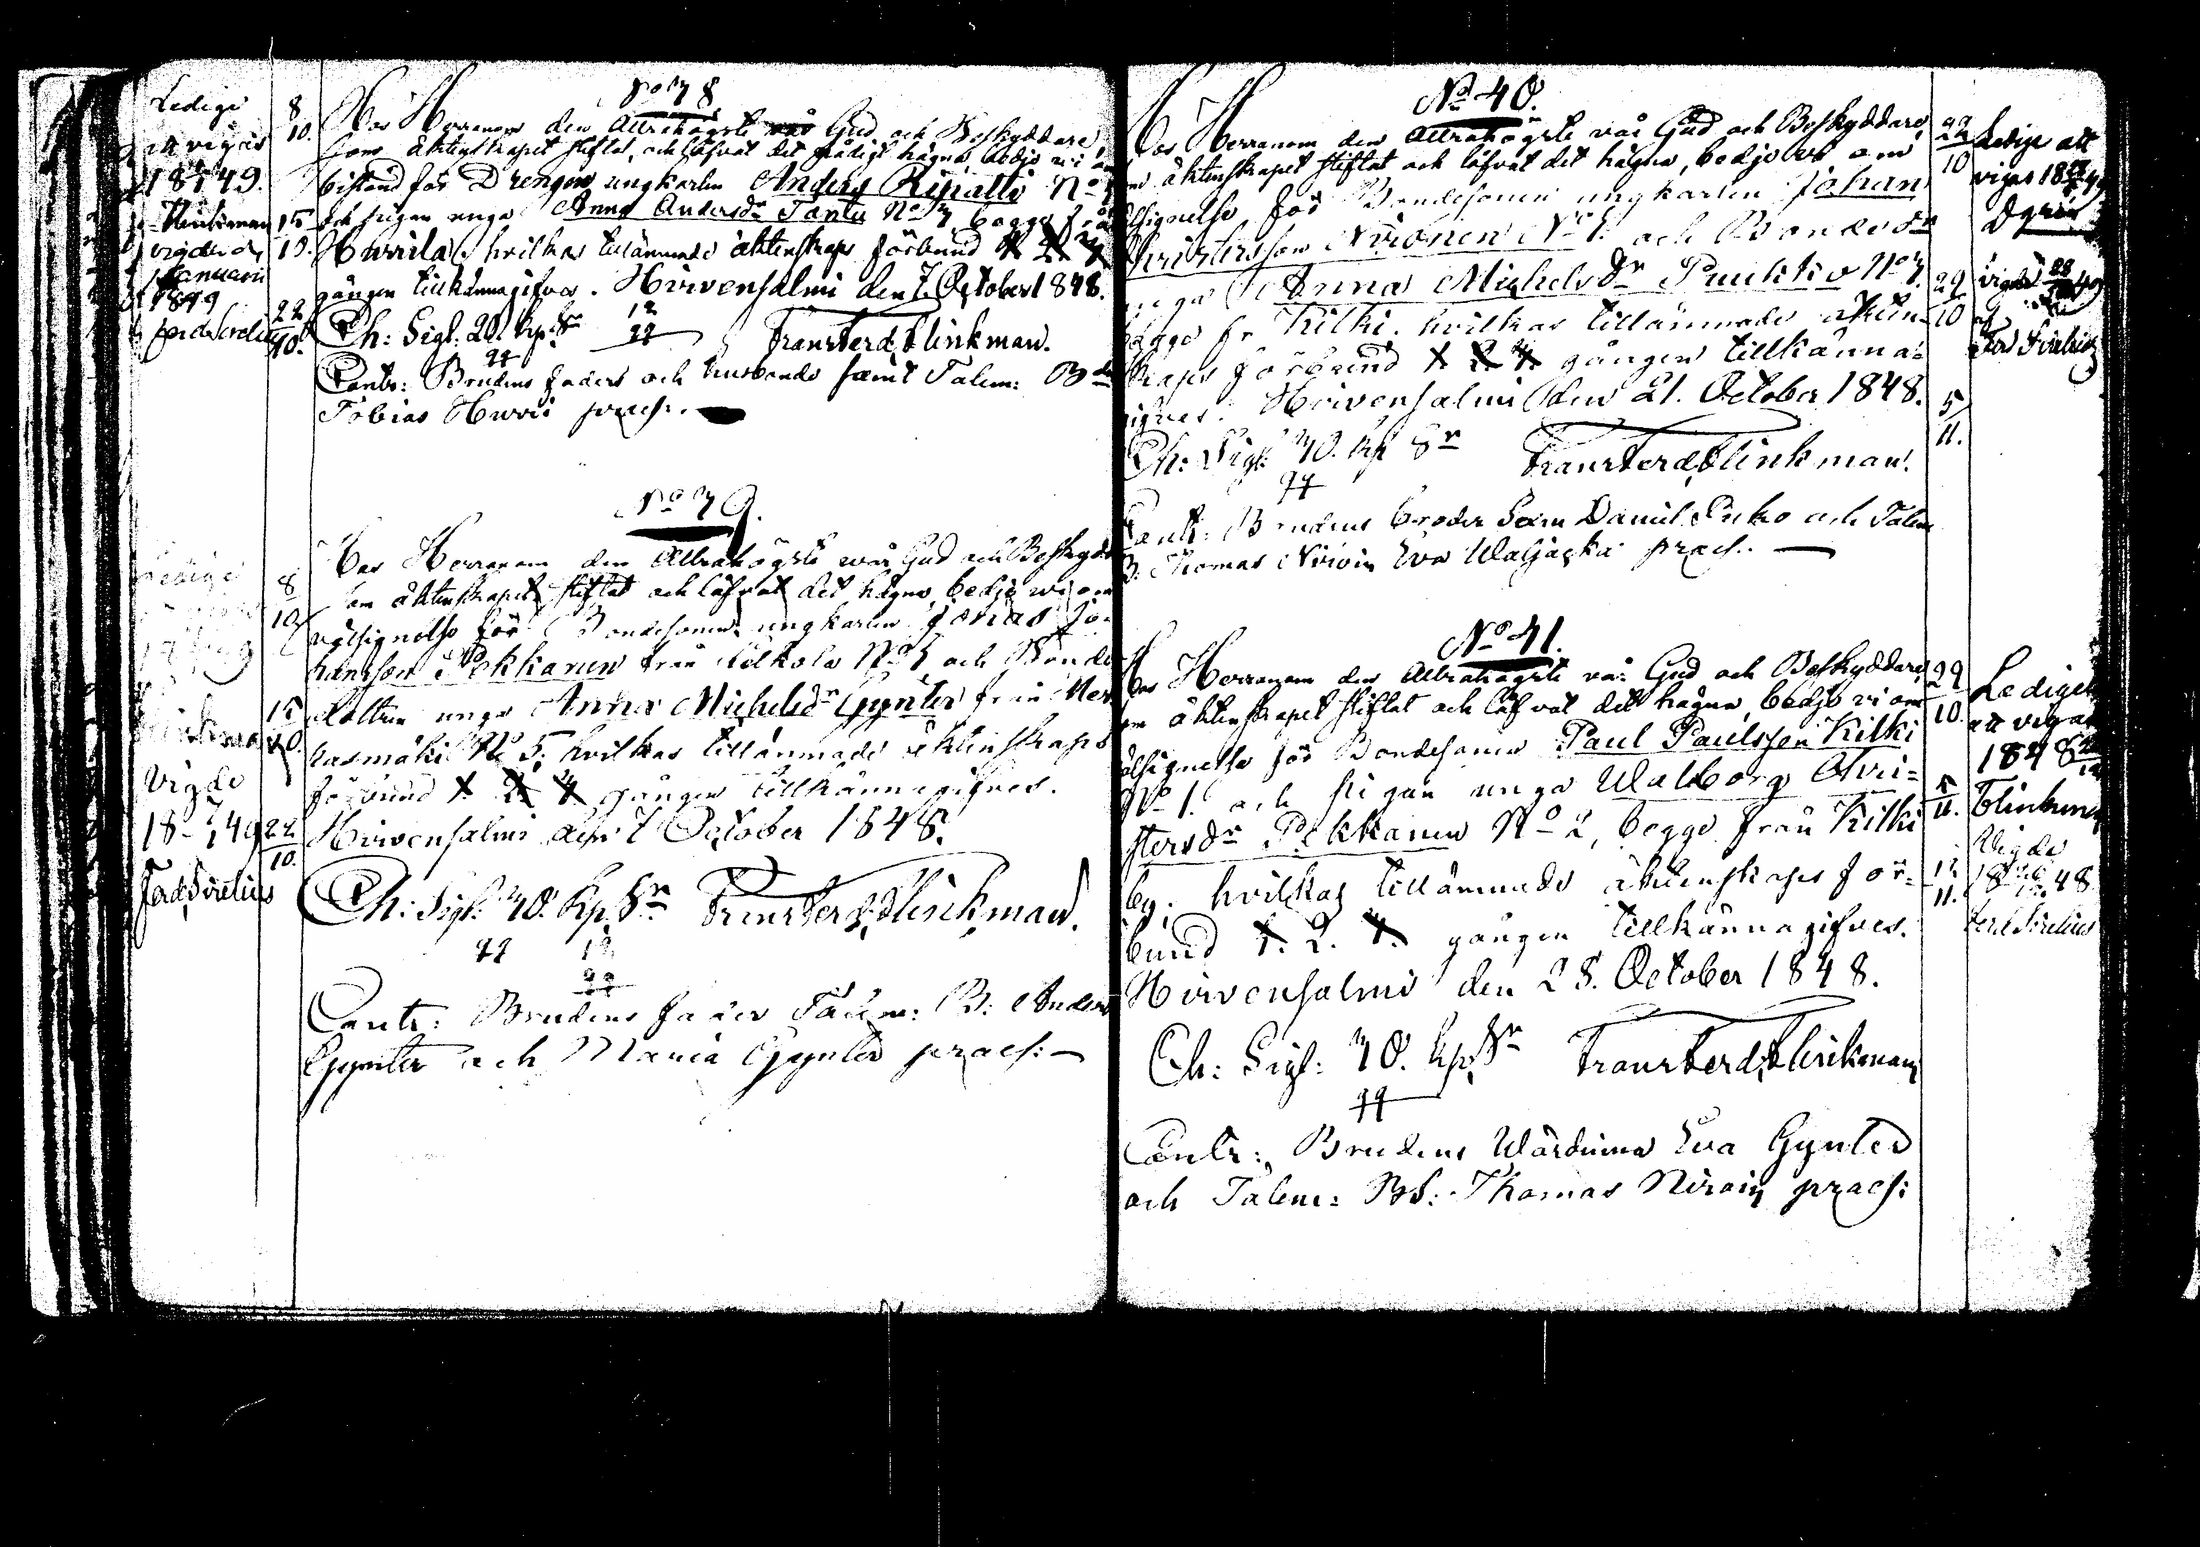 No 38
Ledige
att vigas
1849.
Flinkman
vigde d.
Januarii
1849
Ferd. Sirelius
8
10.
15
10.
22
10.
Hos Herranom den Allrahögste vår Gud och Beskyddare,
som äktenskapet stiftat, och låfvat det nådigt hägna, bedje vi om
bistånd för Drengen ungkarlen Anders Ripatti No 3
och pigan unga Anna Andersdr Tantu No 3 begge från
Hurrila, hvilkas tillämnade äktenskaps förbund 1. 2. 3.
gången tillkännagifves. Hirvensalmi den 7 October 1848.
Ch: Sigl: 20. kp. Sr Frans Ferd. Flinkman.
Contr: Brudens fader och husbonde samt Talem: Bd
Tobias Hurri præs:
No 39.
8
10
15
10.
22
10.
vigde
18 49
Ferd. Sirelius
Hos Herranom den Allrahögste vår Gud och Beskydd
om äktenskapet stiftat och låfvat det hägna, bedje vi om
välsignelse för Bondesonen ungkarlen Jonas Jo-
hansson Pekkanen från Kilkola No 3 och Bonde
dottren unga Anna Michelsdr Gynter från
rasmäki No 5. hvilkas tillämnade äktenskaps
förbund 1. 2. 3. gången tillkännagifves.
Hirvensalmi den 7 October 1848.
Ch: Sigl: 30. kp. Sr Frans Ferd. Flinkman.
Contr: Brudens fader Talem: B: Anders
Gynter och Maria Gynter præs:
No 40.
Hos Herranom den Allrahögste vår Gud och Beskyddare,
om äktenskapet stiftat och låfvat det hägna, bedje vi om
älsignelse för Bondesonen ungkarlen Johan
Christersson Nironen No 1. och Bondedr
unga Anna Michelsdr Puukko No 3.
begge fr Kilki. hvilkas tillämnade äkten-
skaps förbund 1. 2. 3. gången tillkänna-
gifves. Hirvensalmi den 21. October 1848.
Ch: Sigl: 30. kp Sr Frans Ferd. Flinkman.
Contr: Brudens broder Daniel Puko och Talem
B: Thomas Niroin Eva Waljacka præs:
22
10
29
10
5
11.
Ledige att
vigas
Dgrin
vigde
Ferd Sirelius
No 41.
Hos Herranom den Allrahögste vår Gud och Beskyddare,
om äktenskapet stiftat och låfvat det hägna, bedje vi om
älsignelse för Bondesonen Paul Paulsson Kilki
No 1. och pigan unga Walborg Chri-
stersdr Pekkanen No 2, begge från Kilki
by. hvilkas tillämnade äktenskaps för-
bund 1. 2. 3. gången tillkännagifves.
Hirvensalmi den 28. October 1848.
Ch: Sigl: 30. kp. Sr Frans Ferd. Flinkman
Contr: Brudens Wärdinna Eva Gynter
och Talem: Bd: Thomas Niroin præs:
29
10.
5
11.
12
11.
Ledige
att vigas
1848
Flinkman
Vigde
18 48
Ferd. Sirelius